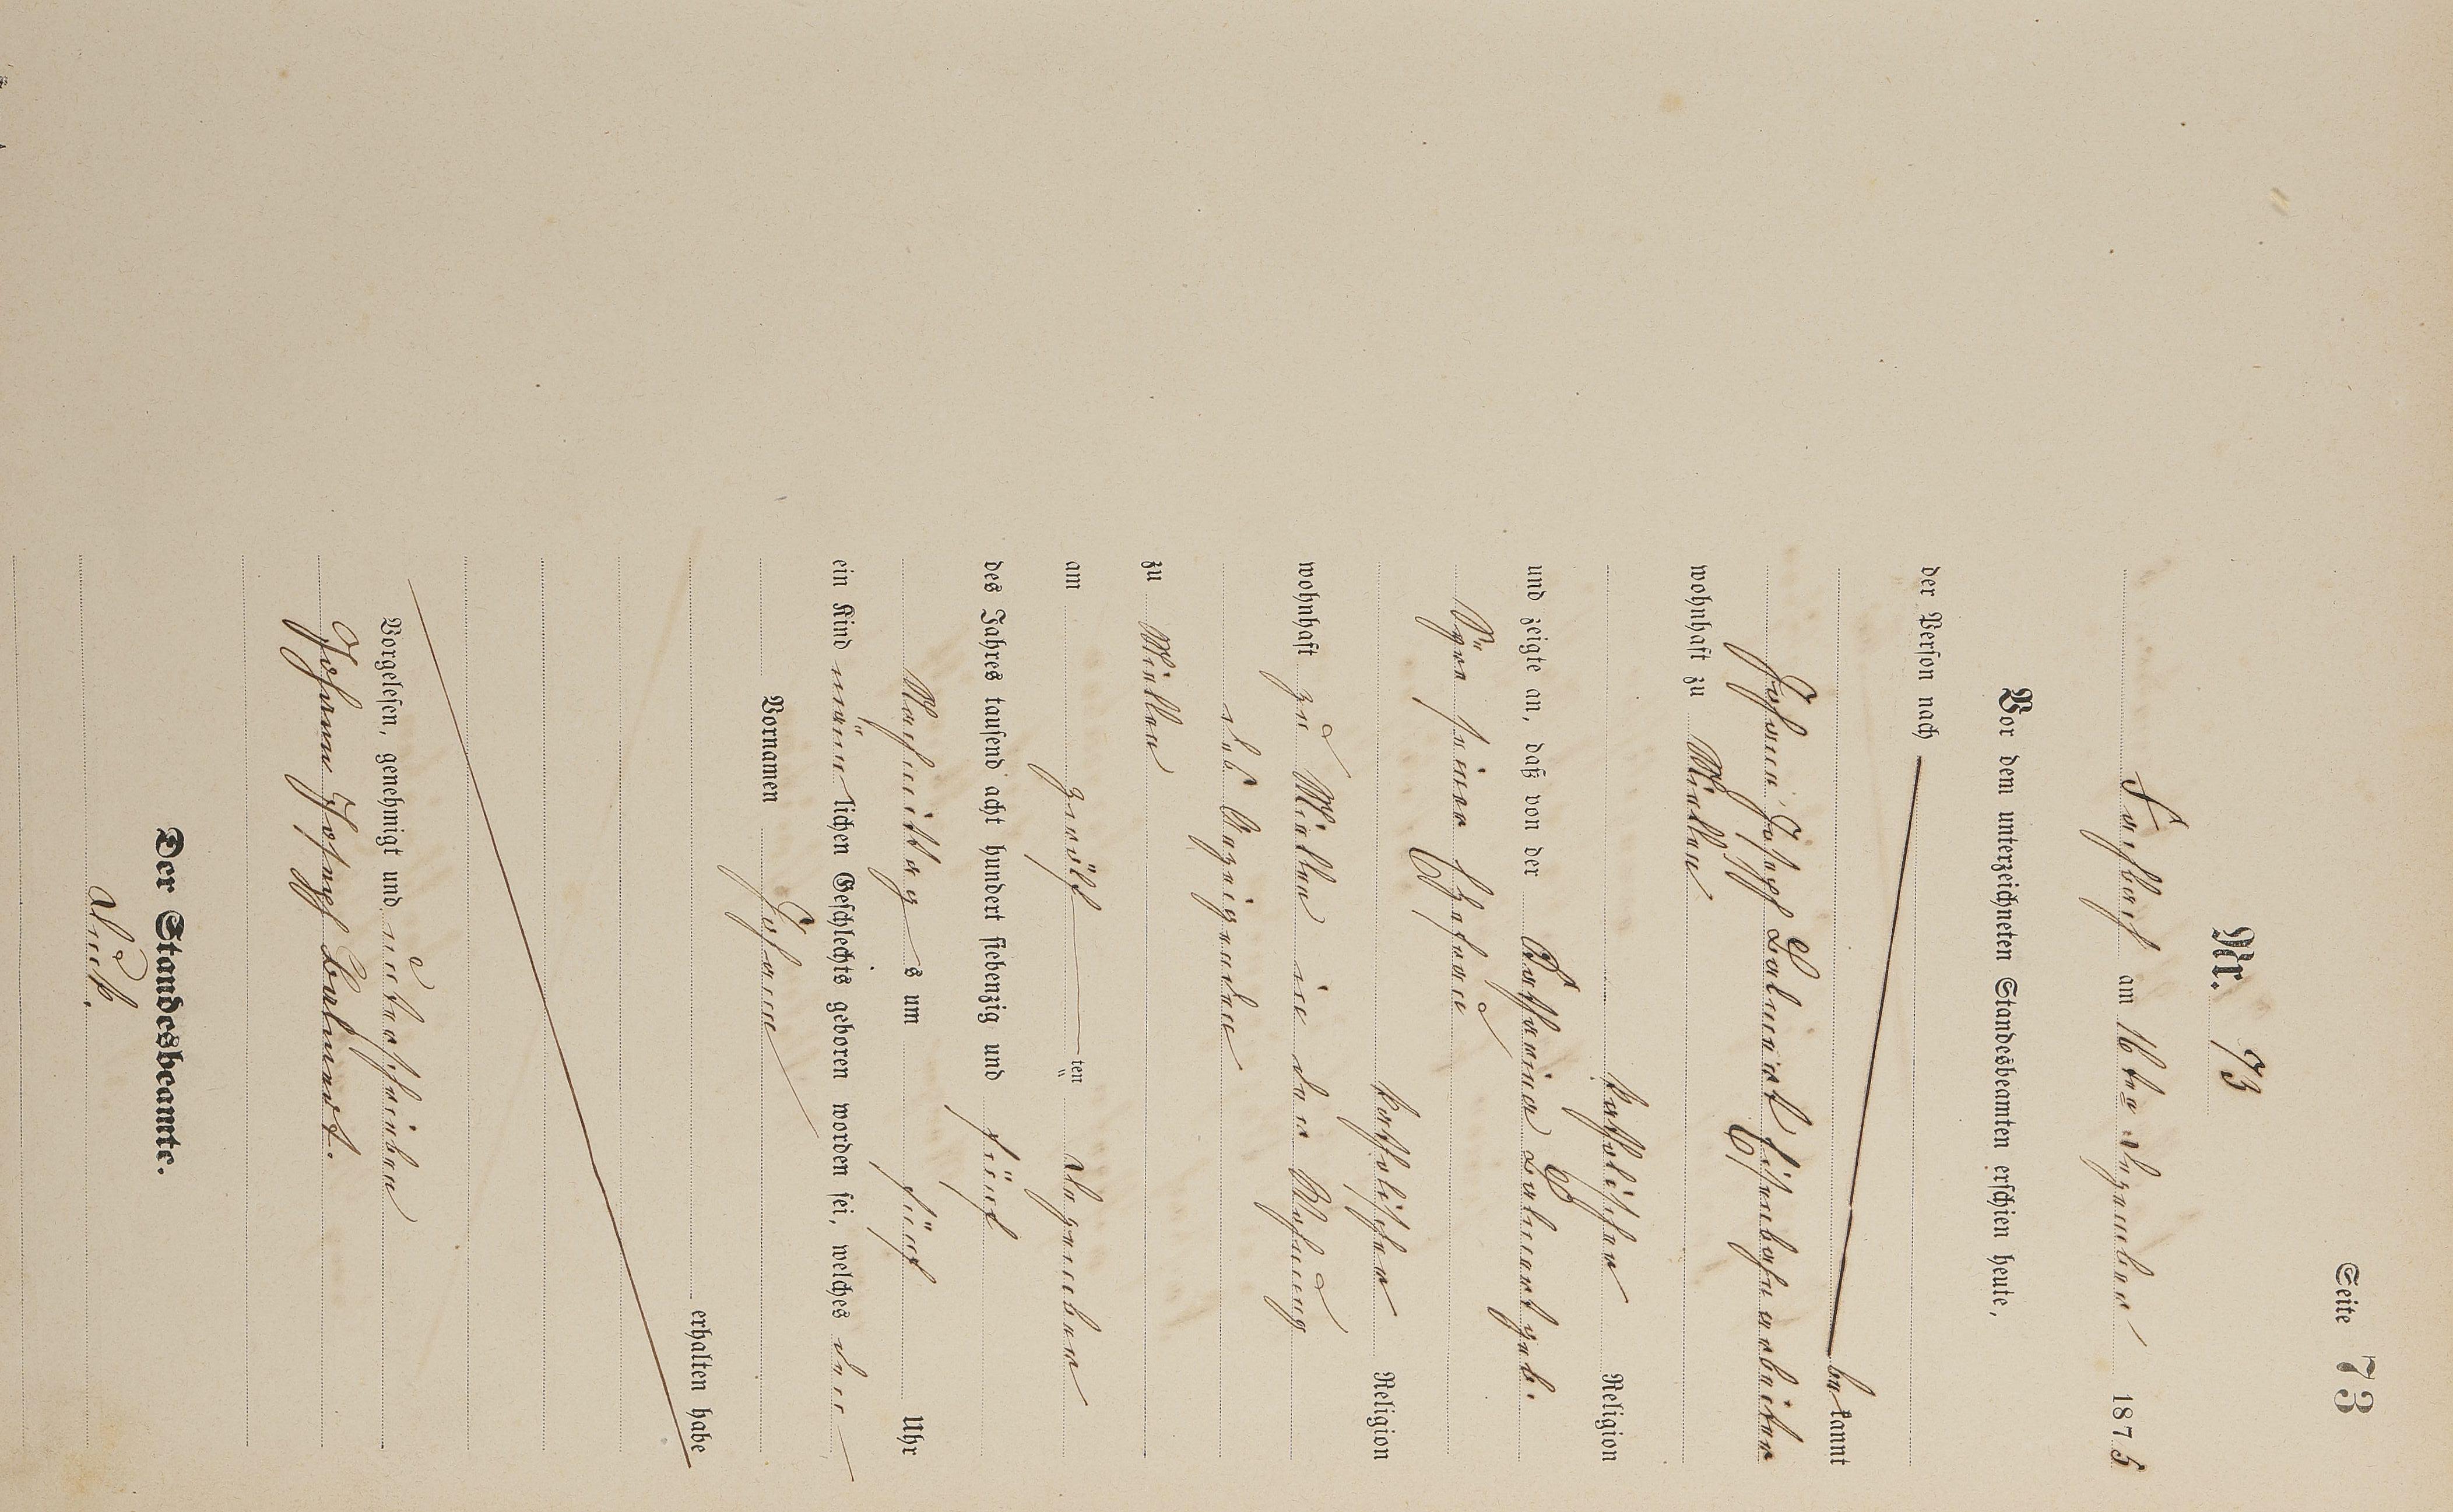 Seite 73
Nr. 73
Fachbach am 16ten Dezember 1875
Vor dem unterzeichneten Standesbeamten erschien heute,
der Person nach
bekannt
Johann Joseph Balmert Eisenbahnarbeiter
wohnhaft zu Miellen
katholischer Religion
und zeigte an, daß von der Katharina Balmert geb.
seiner Ehefrau
katholischer Religion
wohnhaft zu Miellen in der Wohnung
des Anzeigenden
zu Miellen
am zwölften Dezember
des Jahres tausend acht hundert siebenzig und fünf
Nachmittags um fünf Uhr
ein Kind männlichen Geschlechts geboren worden sei, welches den
Vornamen Johann
erhalten habe
Vorgelesen, genehmigt und unterschrieben
Johann Joseph Balmert.
Der Standesbeamte.